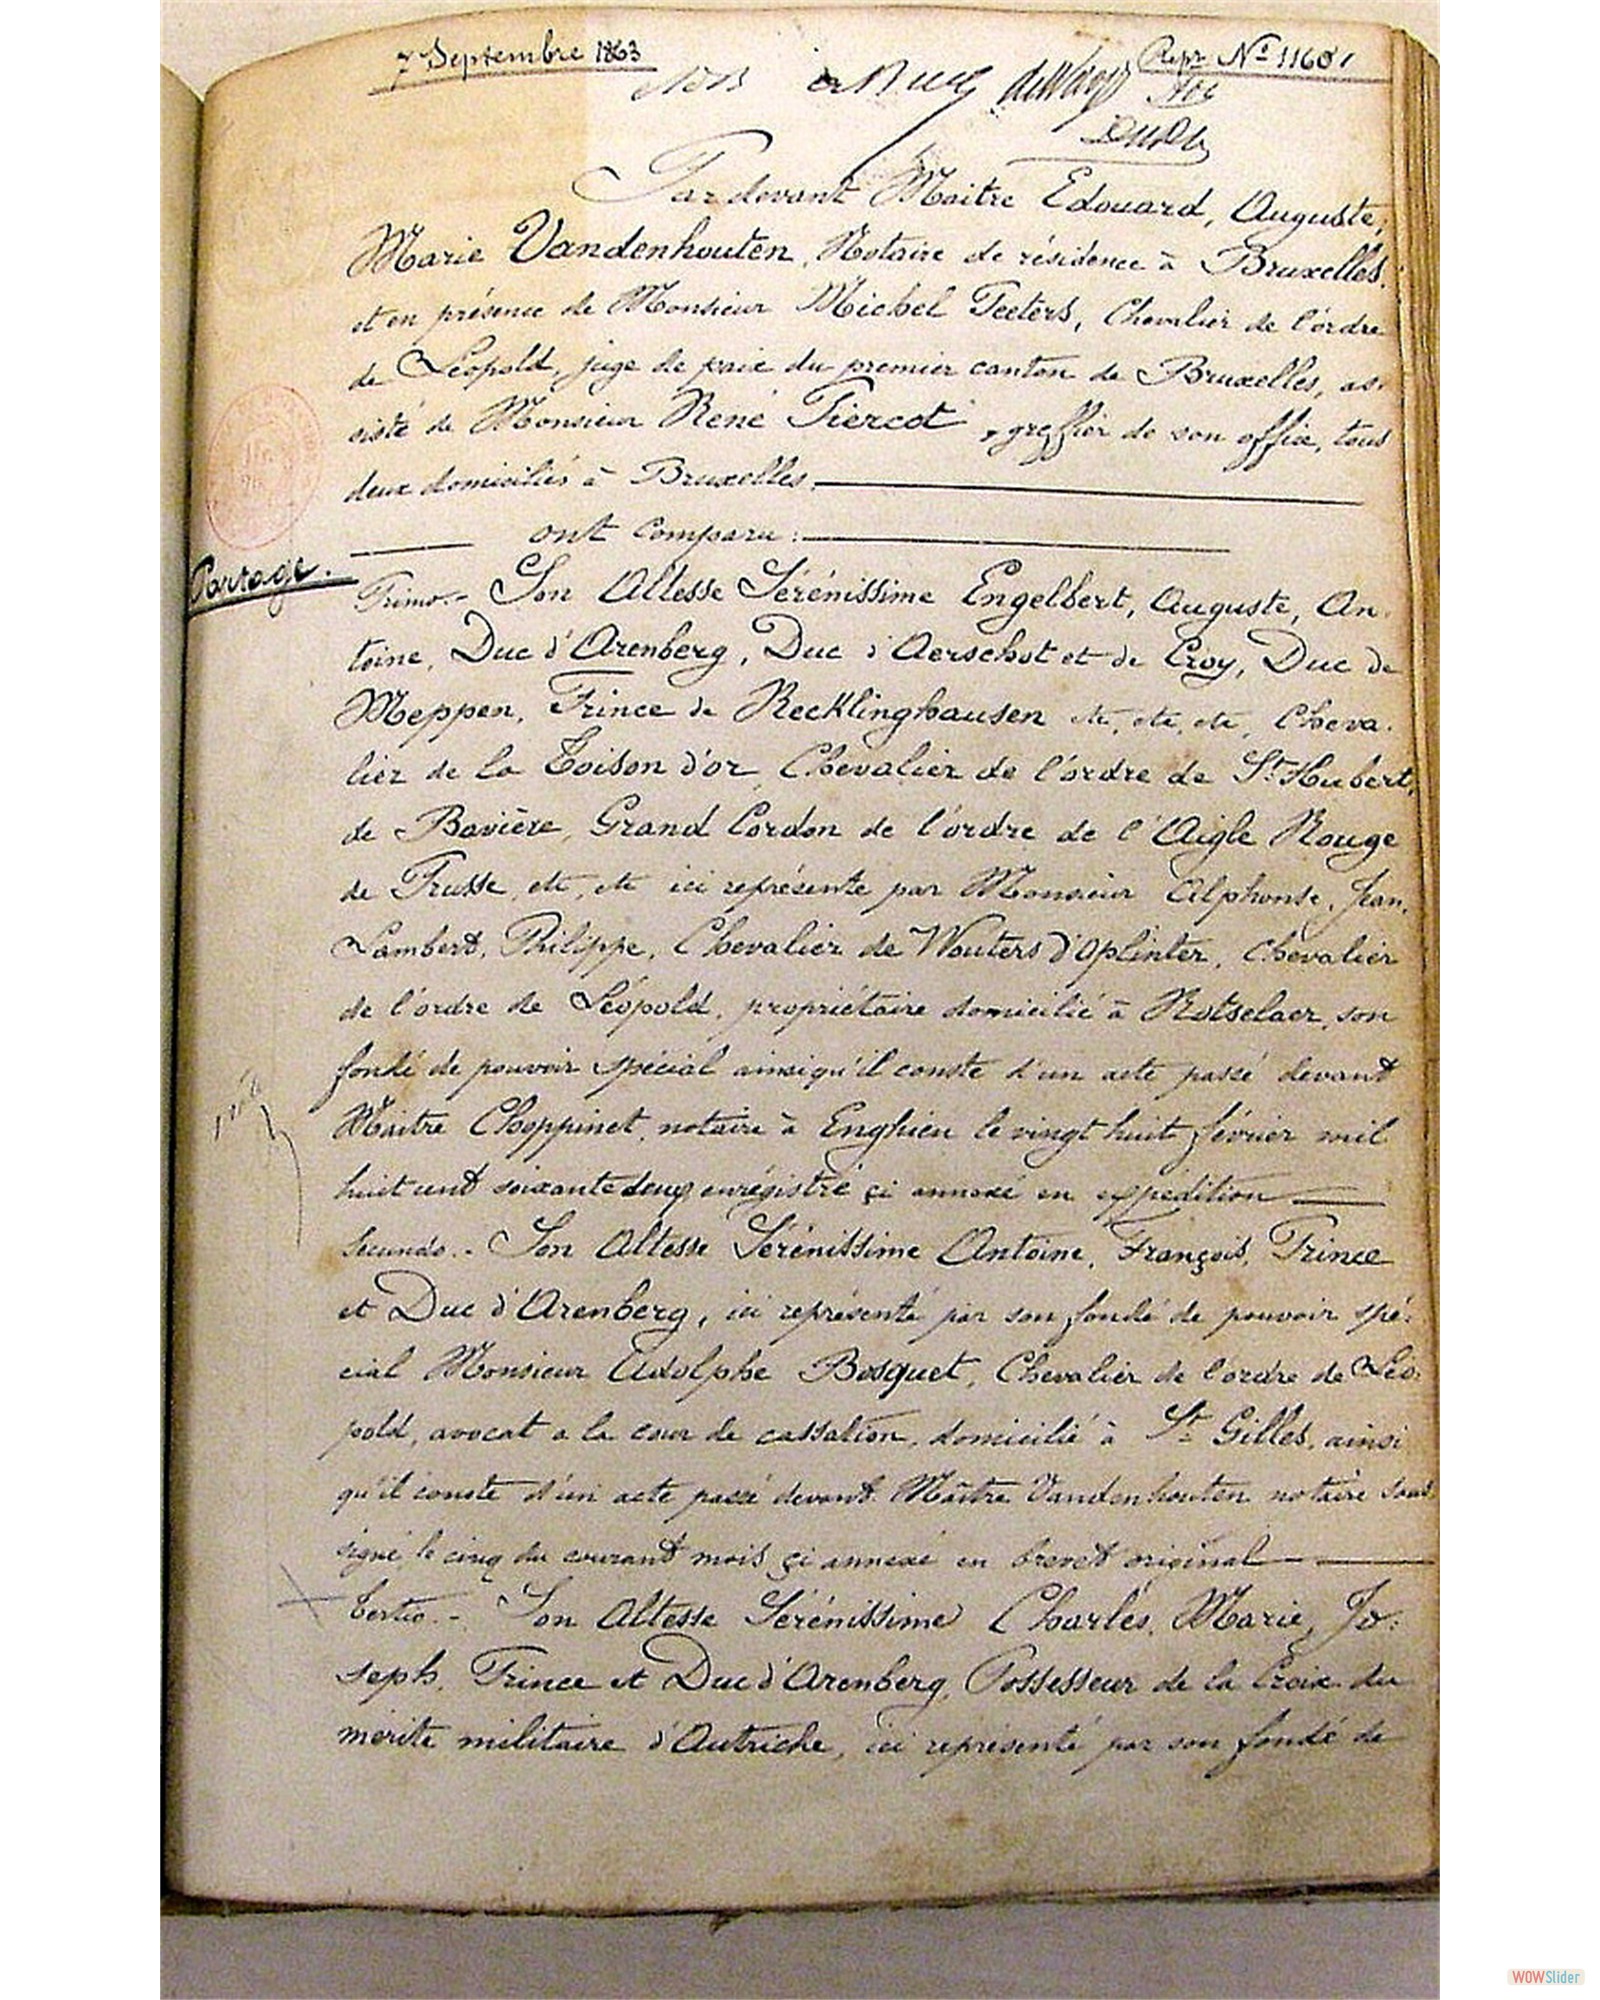 7 Septembre 1863
Rep: Nº 11601
Pardevant Maitre Edouard, Auguste,
Marie Vandenhouten, Notaire de résidence à Bruxelles.
et en présence de Monsieur Michel Peeters, Chevalier de l'ordre
de Léopold, juge de paix du premier canton de Bruxelles, as-
sisté de Monsieur René Piercot, greffier de son office, tous
deux domiciliés à Bruxelles.
ont comparu:
Partage.
Primo.- Son Altesse Sérénissime Engelbert, Auguste, An-
toine, Duc d'Arenberg, Duc d'Aerschot et de Croy, Duc de
Meppen, Prince de Recklinghausen etc, etc, etc, Cheva-
lier de la Toison d'or, Chevalier de l'ordre de St Hubert,
de Bavière, Grand Cordon de l'ordre de l'Aigle Rouge
de Prusse, etc, etc ici représenté par Monsieur Alphonse, Jean,
Lambert, Philippe, Chevalier de Wouters d'Oplinter, Chevalier
de l'ordre de Léopold, propriétaire domicilié à Rotselaer, son
fondé de pouvoir spécial ainsi qu'il conste d'un acte passé devant
Maitre Choppinet, notaire à Enghien le vingt huit février mil
huit cent soixante deux enrégistré çi annexé en expédition
Secundo.- Son Altesse Sérénissime Antoine, François, Prince
et Duc d'Arenberg, ici représenté par son fondé de pouvoir spé-
cial Monsieur Adolphe Bosquet, Chevalier de l'ordre de Léo-
pold, avocat a la cour de cassation, domicilié à St Gilles, ainsi
qu'il conste d'un acte passé devant Maître Vandenhouten notaire sous
signé le cinq du courant mois çi annexé en brevet original
Tertio.- Son Altesse Sérénissime Charles, Marie, Jo-
seph, Prince et Duc d'Arenberg, Possesseur de la Croix du
mérite militaire d'Autriche, ici représenté par son fondé de
WOWSlider